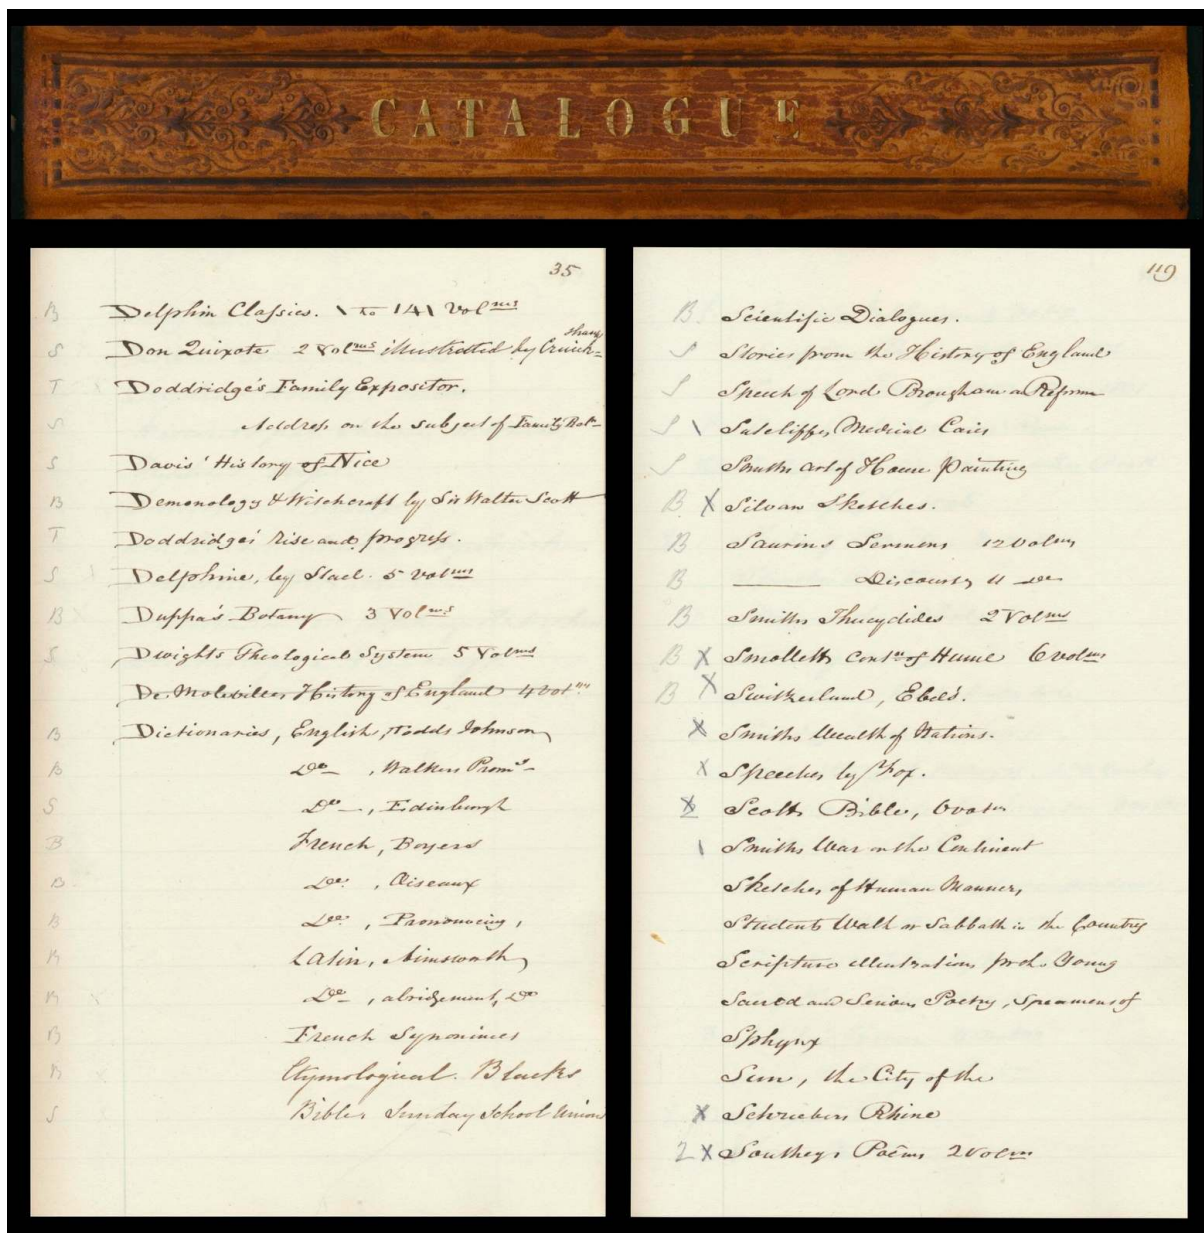 CATALOGUE
35
B Delphin Classics. 1 to 141 Volms
shank
S Don Quixote 2 Volms illustrated by Cruick=
T Doddridge's Family Expositor.
S Address on the subject of Family Rel-
S Davis' History of Nice
B Demonology & Witchcraft by Sir Walter Scott
T Doddridges' rise and progress.
S Delphine, by Stael. 5 Volms
B Duppa's Botany 3 Volms
S Dwights Theological System 5 Volms
De Molevilles History of England 4 Vol
B Dictionaries, English, Todds Johnson
B Do , Walkers
S Do , Edinburgh
B French, Boyers
B Do , Oiseaux
B Do , Pronouncing,
B Latin, Ainsworth
B Do , abridgement, Do
B French Synonimes
B Etymological. Blacks
S Bible Sunday School Union
119
B Scientific Dialogues.
S Stories from the History of England
S Speech of Lord Brougham on Reform
S \ Sutcliffes Medical Cases
S Smiths art of House Painting
B X Silvan Sketches.
B Saurins Sermons 12 Volms
B ——— Discours 11 Do
B Smiths Thucydides 2 Volms
B X Smolletts contn of Hume 6 volms
B X Switzerland, Ebels.
X Smiths Wealth of Nations.
X Speeches by Fox.
X Scotts Bible, 6 vols
\ Smiths War on the Continent
Sketches of Human Manners,
Students Walk or Sabbath in the Country
Scripture illustrations for the Young
Sacred and Serious Poetry, Specimens of
Sphynx
Sun, the City of the
X Schriebers Rhine
2 X Southeys Poems 2 Volms